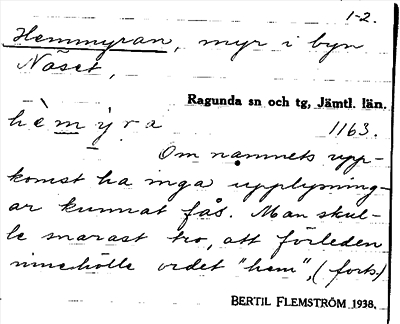 1-2.
Hemmyran, myr i byn
Näset,
Ragunda sn och tg, Jämtl. län.
hèmýra
1163.
Om namnets upp-
komst ha inga upplysning-
ar kunnat fås. Man skul-
le snarast tro, att förleden
innehölle ordet "hem", (forts.)
BERTIL FLEMSTRÖM 1938.